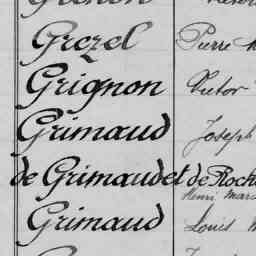 Grezel Pierre
Grignon Victor
Grimaud Joseph
de Grimaudet de Roche
Henri Mars
Grimaud Louis